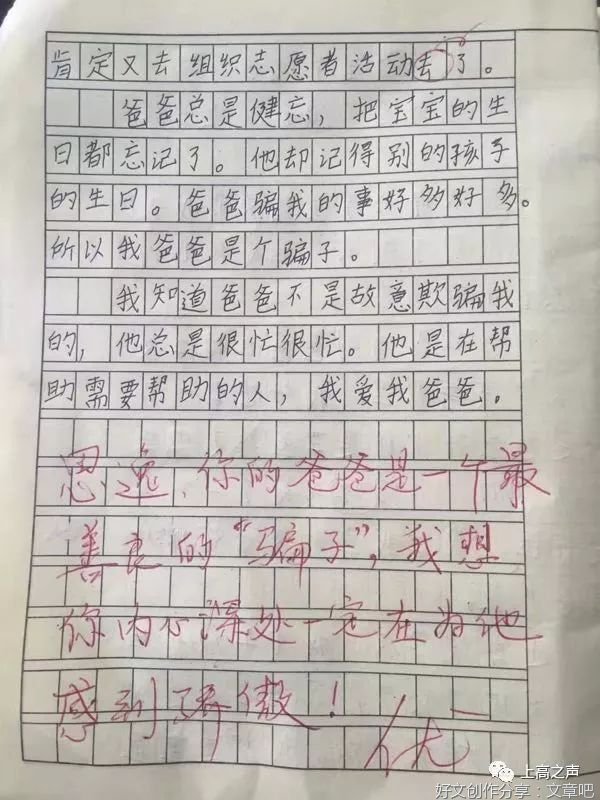 肯定又去组织志愿者活动去了。
爸爸总是健忘，把宝宝的生
日都忘记了。他却记得别的孩子
的生日。爸爸骗我的事好多好多。
所以我爸爸是个骗子。
我知道爸爸不是故意欺骗我
的，他总是很忙很忙。他是在帮
助需要帮助的人，我爱我爸爸。
思逸，你的爸爸是一个最
善良的“骗子”，我想
你内心深处一定在为他
感到骄傲！
优
上高之声
好文创作分享：文章吧